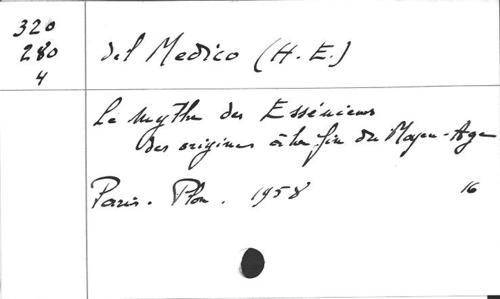 320
280
4
del Medico (H. E.)
Le mythe des Esséniens
des origines à la fin du Moyen-Age
Paris. Plon. 1958 16